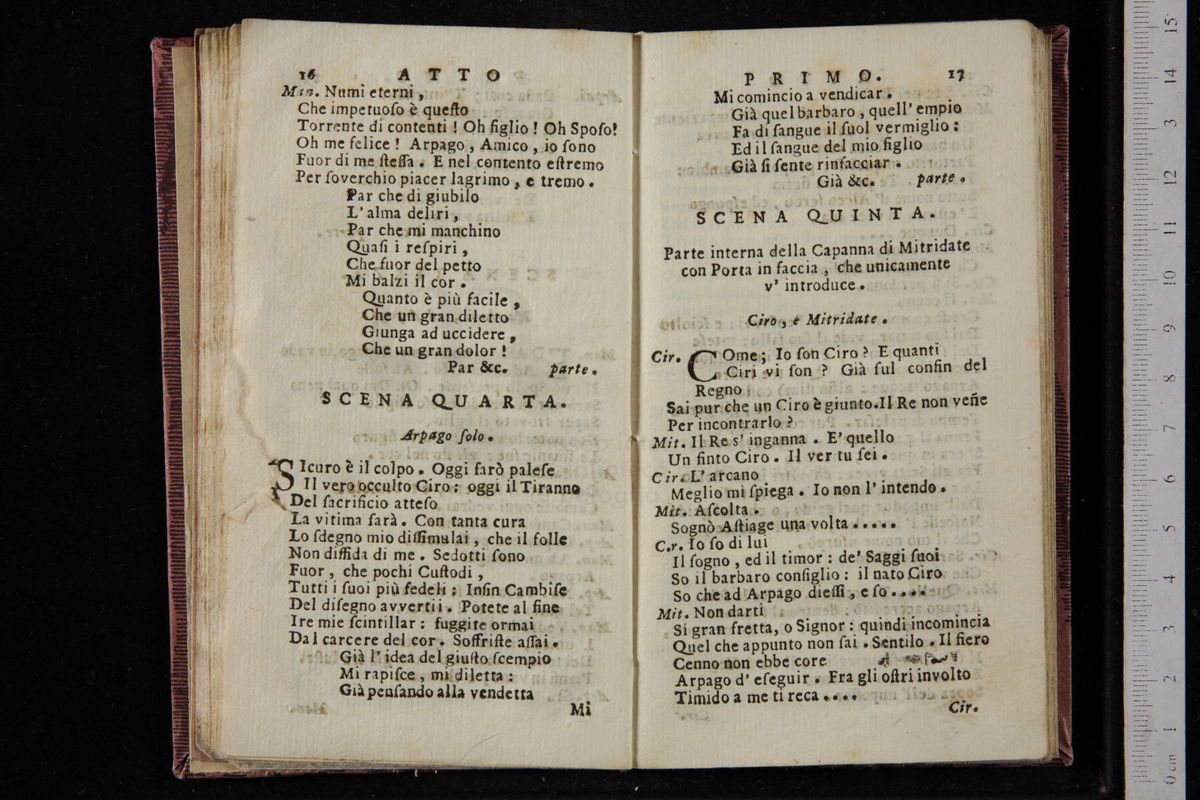 16 ATTO
Man. Numi eterni,
Che impetuoſo è queſto
Torrente di contenti! Oh figlio! Oh Spoſo!
Oh me felice! Arpago, Amico, io ſono
Fuor di me ſteſſa. E nel contento eſtremo
Per ſoverchio piacer lagrimo, e tremo.
Par che di giubilo
L'alma deliri,
Par che mi manchino
Quaſi i reſpiri,
Che fuor del petto
Mi balzi il cor.
Quanto è più facile,
Che un gran diletto
Giunga ad uccidere,
Che un gran dolor!
Par &c. parte.
SCENA QUARTA.
Arpago ſolo.
SIcuro è il colpo. Oggi farò paleſe
Il vero occulto Ciro: oggi il Tiranno
Del ſacrificio atteſo
La vitima ſarà. Con tanta cura
Lo ſdegno mio diſſimulai, che il folle
Non diffida di me. Sedotti ſono
Fuor, che pochi Cuſtodi,
Tutti i ſuoi più fedeli: Inſin Cambiſe
Del diſegno avvertii. Potete al fine
Ire mie ſcintillar: fuggite ormai
Dal carcere del cor. Soffriſte aſſai.
Già l'idea del giuſto ſcempio
Mi rapiſce, mi diletta:
Già penſando alla vendetta
Mi
PRIMO. 17
Mi comincio a vendicar.
Già quel barbaro, quell'empio
Fa di ſangue il ſuol vermiglio:
Ed il ſangue del mio figlio
Già ſi ſente rinfacciar.
Già &c. parte.
SCENA QUINTA.
Parte interna della Capanna di Mitridate
con Porta in faccia, che unicamente
v'introduce.
Ciro, e Mitridate.
Cir. COme; Io ſon Ciro? E quanti
Ciri vi ſon? Già ſul confin del
Regno
Sai pur che un Ciro è giunto. Il Re non veñe
Per incontrarlo?
Mit. Il Re s'inganna. E' quello
Un finto Ciro. Il ver tu ſei.
Cir. L'arcano
Meglio mi ſpiega. Io non l'intendo.
Mit. Aſcolta.
Sognò Aſtiage una volta.....
C.r. Io ſo di lui
Il ſogno, ed il timor: de' Saggi ſuoi
So il barbaro conſiglio: il nato Ciro
So che ad Arpago dieſſi, e ſo....
Mit. Non darti
Si gran fretta, o Signor: quindi incomincia
Quel che appunto non ſai. Sentilo. Il fiero
Cenno non ebbe core
Arpago d'eſeguir. Fra gli oſtri involto
Timido a me ti reca....
Cir.